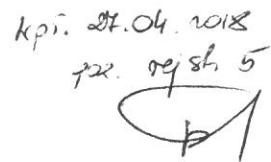 kpi. 27.04.2018
pz. rejsh 5